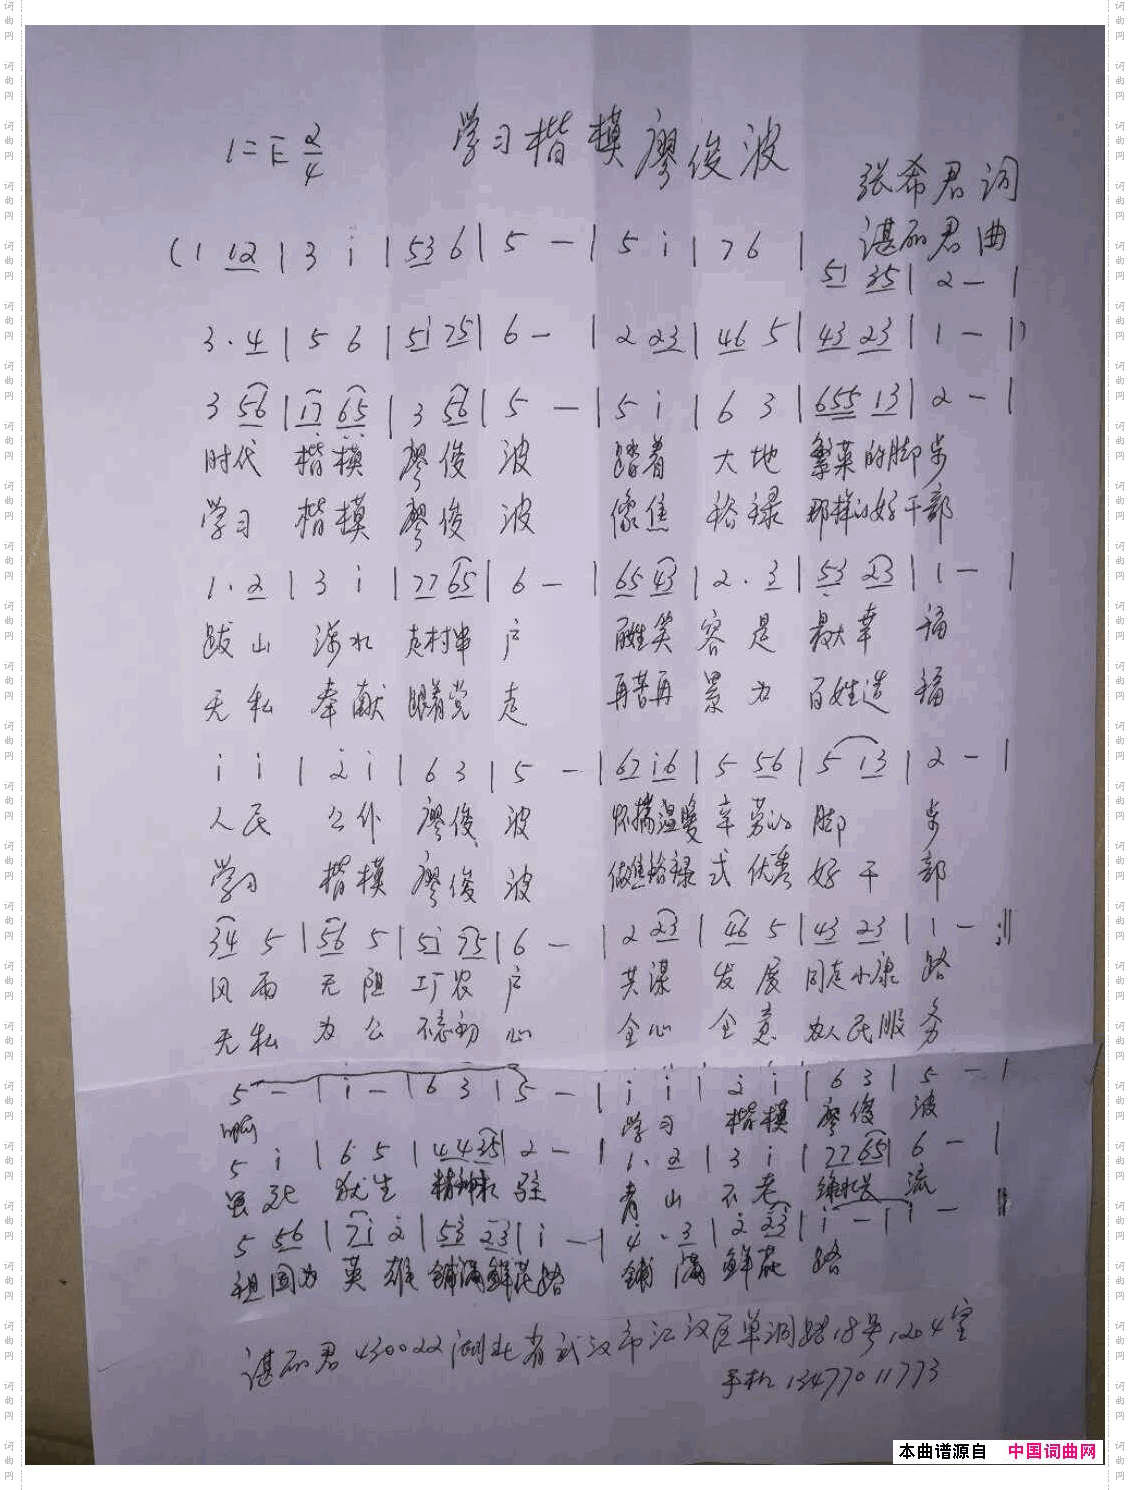 学习楷模廖俊波
1=E 2/4
张希君 词
谌丽君 曲
(1 12 | 3 i | 53 6 | 5 — | 5 i | 76 | 51 35 | 2 — |
3·4 | 5 6 | 5i 75 | 6 — | 2 23 | 46 5 | 43 23 | 1 — |)
3 56 | 17 65 | 3 56 | 5 — | 5 i | 6 3 | 655 13 | 2 — |
时代 楷模 廖俊 波 踏着 大地 繁菜的脚步
学习 楷模 廖俊 波 像焦 裕禄 那样的好干部
1·2 | 3 i | 77 65 | 6 — | 65 43 | 2·3 | 53 23 | 1 — |
跋山 涉水 走村串 户 百姓笑 容是 最大幸 福
无私 奉献 跟着党 走 再苦再 累为 百姓造 福
i i | 2 i | 6 3 | 5 — | 67 i6 | 5 56 | 5 13 | 2 — |
人民 公仆 廖俊 波 怀揣温暖 辛劳的 脚 步
学习 楷模 廖俊 波 做焦裕禄 式优秀 好干 部
34 5 | 56 5 | 5i 75 | 6 — | 2 23 | 46 5 | 43 23 | 1 — :||
风雨 无阻 工厂农 户 共谋 发展 同走小康 路
无私 为公 不忘初 心 全心 全意 为人民服 务
5 — | i — | 6 3 | 5 — | i i | 2 i | 6 3 | 5 — |
啊 学习 楷模 廖俊 波
5 i | 6 5 | 44 35 | 2 — | 1·2 | 3 i | 77 65 | 6 — |
虽死 犹生 精神永 驻 青山 不老 绿水长 流
5 56 | 7i 2 | 53 23 | i — | 4·3 | 2 23 | i — | i — ||
祖国为 英雄 铺满鲜花路 铺满 鲜花 路
谌丽君 430022 湖北省武汉市江汉区单洞路18号1204室
手机 13477011773
本曲谱源自 中国词曲网